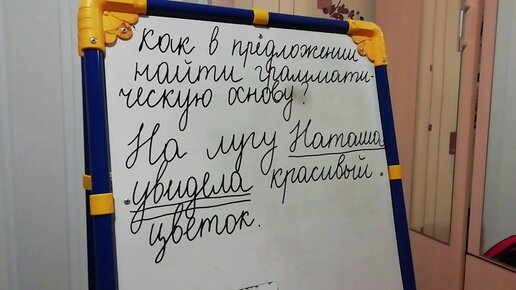 Как в предложении
найти граммати-
ческую основу?
На лугу Наташа
увидела красивый
цветок.